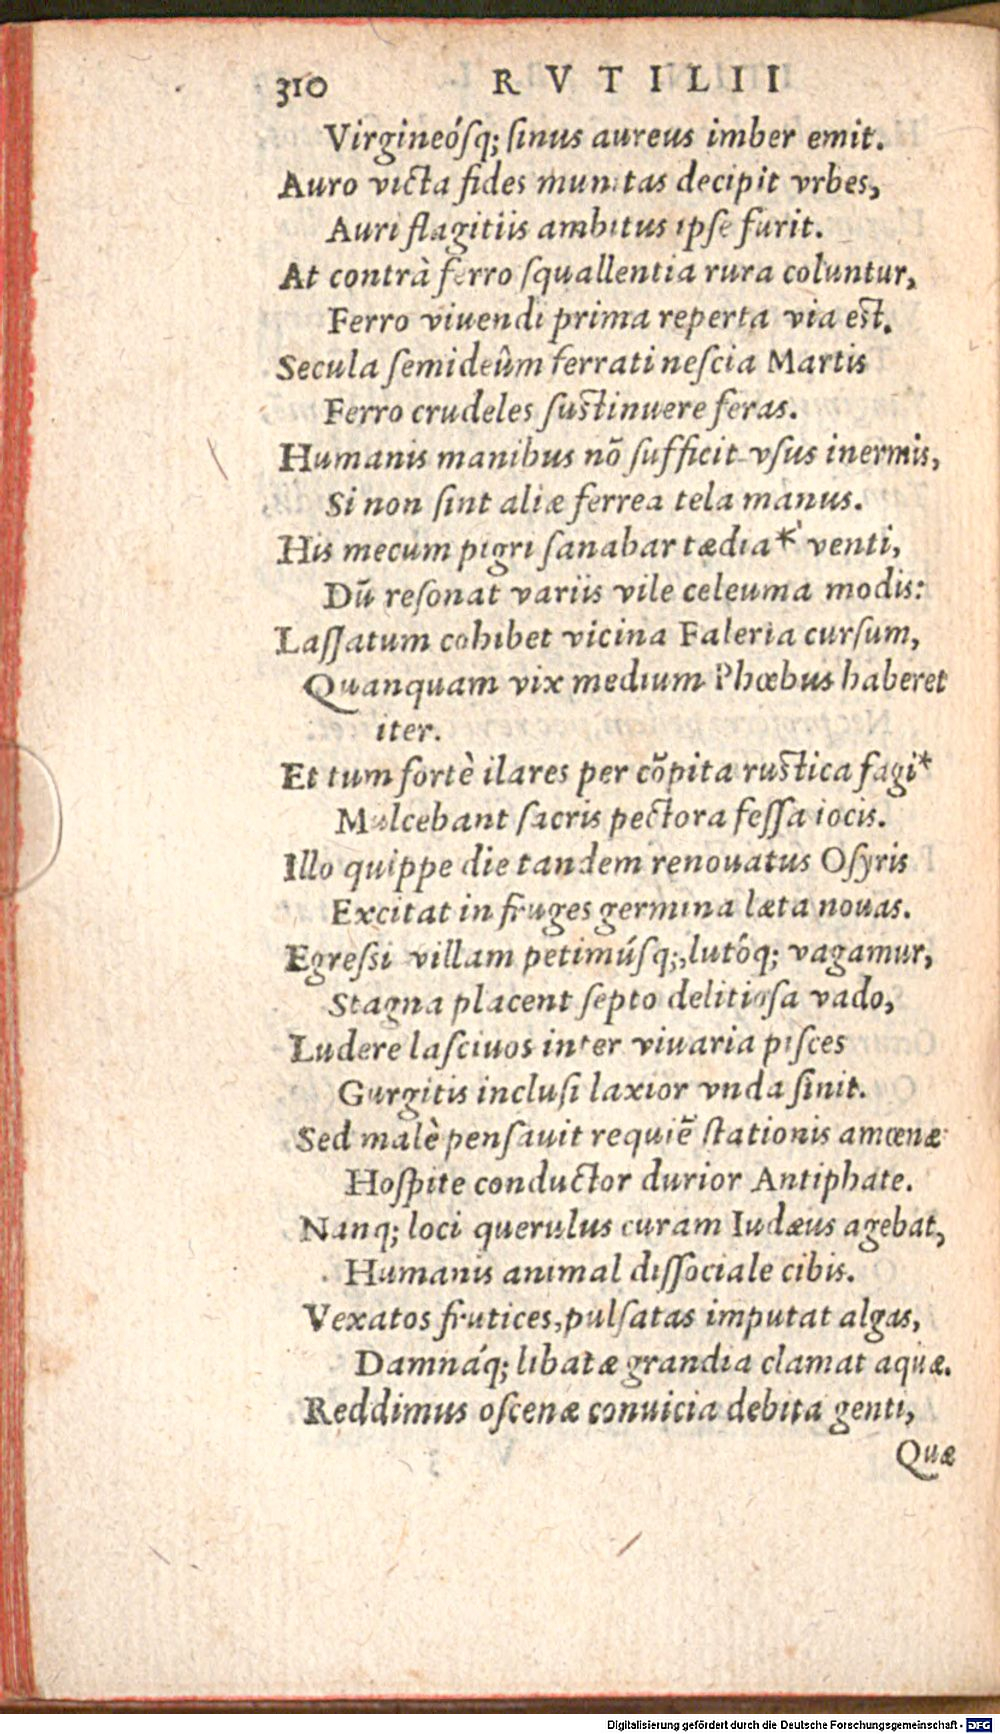 310 RVTILII
Virgineósq; ſinus aureus imber emit.
Auro victa fides munitas decipit vrbes,
Auri flagitiis ambitus ipſe furit.
At contrà ferro ſquallentia rura coluntur,
Ferro viuendi prima reperta via est.
Secula ſemideûm ferrati neſcia Martis
Ferro crudeles ſustinuere feras.
Humanis manibus nõ ſufficit vſus inermis,
Si non ſint aliæ ferrea tela manus.
His mecum pigri ſanabar tædia* venti,
Dũ reſonat variis vile celeuma modis:
Laſſatum cohibet vicina Faleria curſum,
Quanquam vix medium Phœbus haberet
iter.
Et tum fortè ilares per cõpita rustica fagi*
Mulcebant ſacris pectora feſſa iocis.
Illo quippe die tandem renouatus Oſyris
Excitat in fruges germina læta nouas.
Egreſsi villam petimúſq;, lutóq; vagamur,
Stagna placent ſepto delitioſa vado,
Ludere laſciuos inter viuaria piſces
Gurgitis incluſi laxior vnda ſinit.
Sed malè penſauit requiẽ ſtationis amœnæ
Hoſpite conductor durior Antiphate.
Nanq; loci querulus curam Iudæus agebat,
Humanis animal diſſociale cibis.
Vexatos frutices, pulſatas imputat algas,
Damnáq; libatæ grandia clamat aquæ.
Reddimus oſcenæ conuicia debita genti,
Quæ
Digitalisierung gefördert durch die Deutsche Forschungsgemeinschaft - DFG